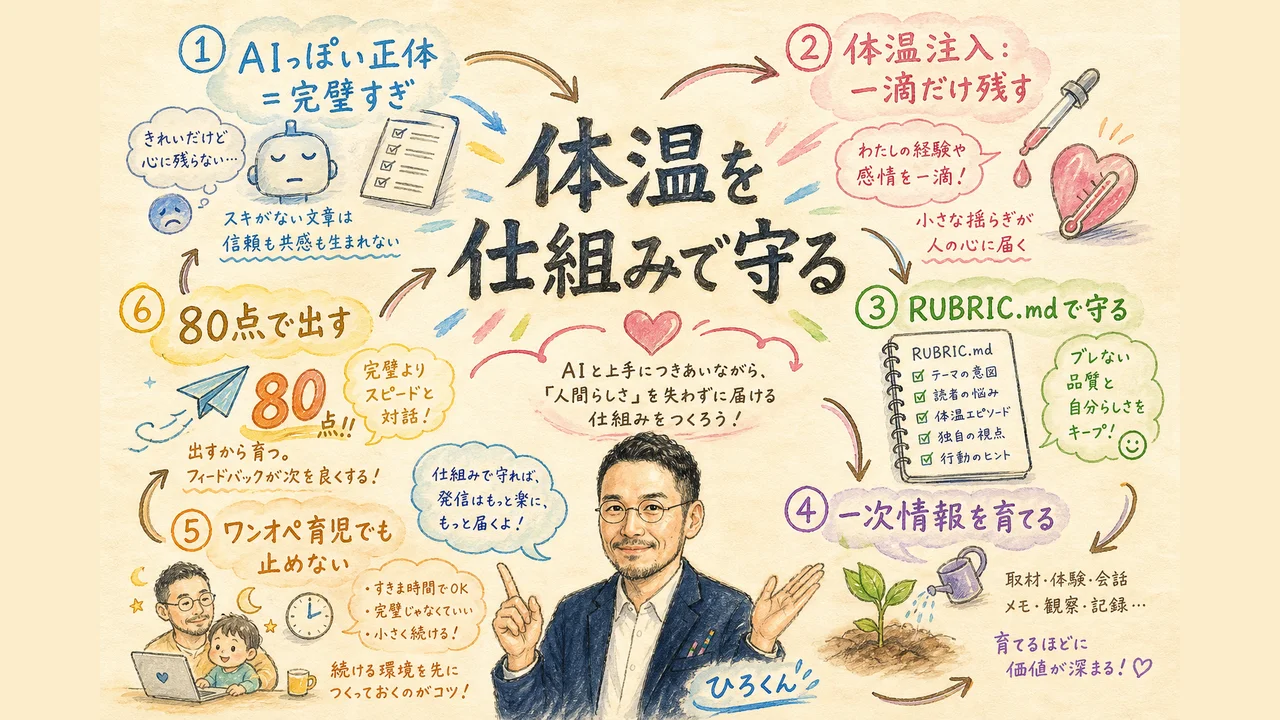 体温を
仕組みで守る
AIと上手につきあいながら、
「人間らしさ」を失わずに届ける
仕組みをつくろう!
① AIっぽい正体
=完璧すぎ
きれいだけど
心に残らない…
スキがない文章は
信頼も共感も生まれない
② 体温注入:
一滴だけ残す
わたしの経験や
感情を一滴!
小さな揺らぎが
人の心に届く
③ RUBRIC.mdで守る
RUBRIC.md
テーマの意図
読者の悩み
体温エピソード
独自の視点
行動のヒント
ブレない
品質と
自分らしさを
キープ!
④ 一次情報を育てる
取材・体験・会話
メモ・観察・記録…
育てるほどに
価値が深まる!♡
⑤ ワンオペ育児でも
止めない
・すきま時間でOK
・完璧じゃなくていい
・小さく続ける!
続ける環境を先に
つくっておくのがコツ!
⑥ 80点で出す
80
点!!
完璧より
スピードと
対話!
出すから育つ。
フィードバックが次を良くする!
仕組みで守れば、
発信はもっと楽に、
もっと届くよ!
ひろくん